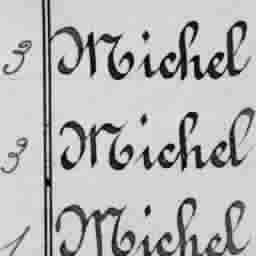 3 Michel
3 Michel
1 Michel